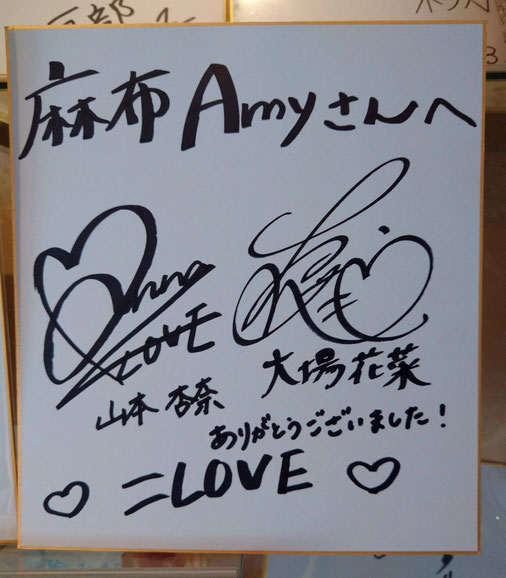 麻布Amyさんへ
Anna
LOVE
山本 杏奈
大場 花菜
ありがとうございました!
♡ =LOVE ♡